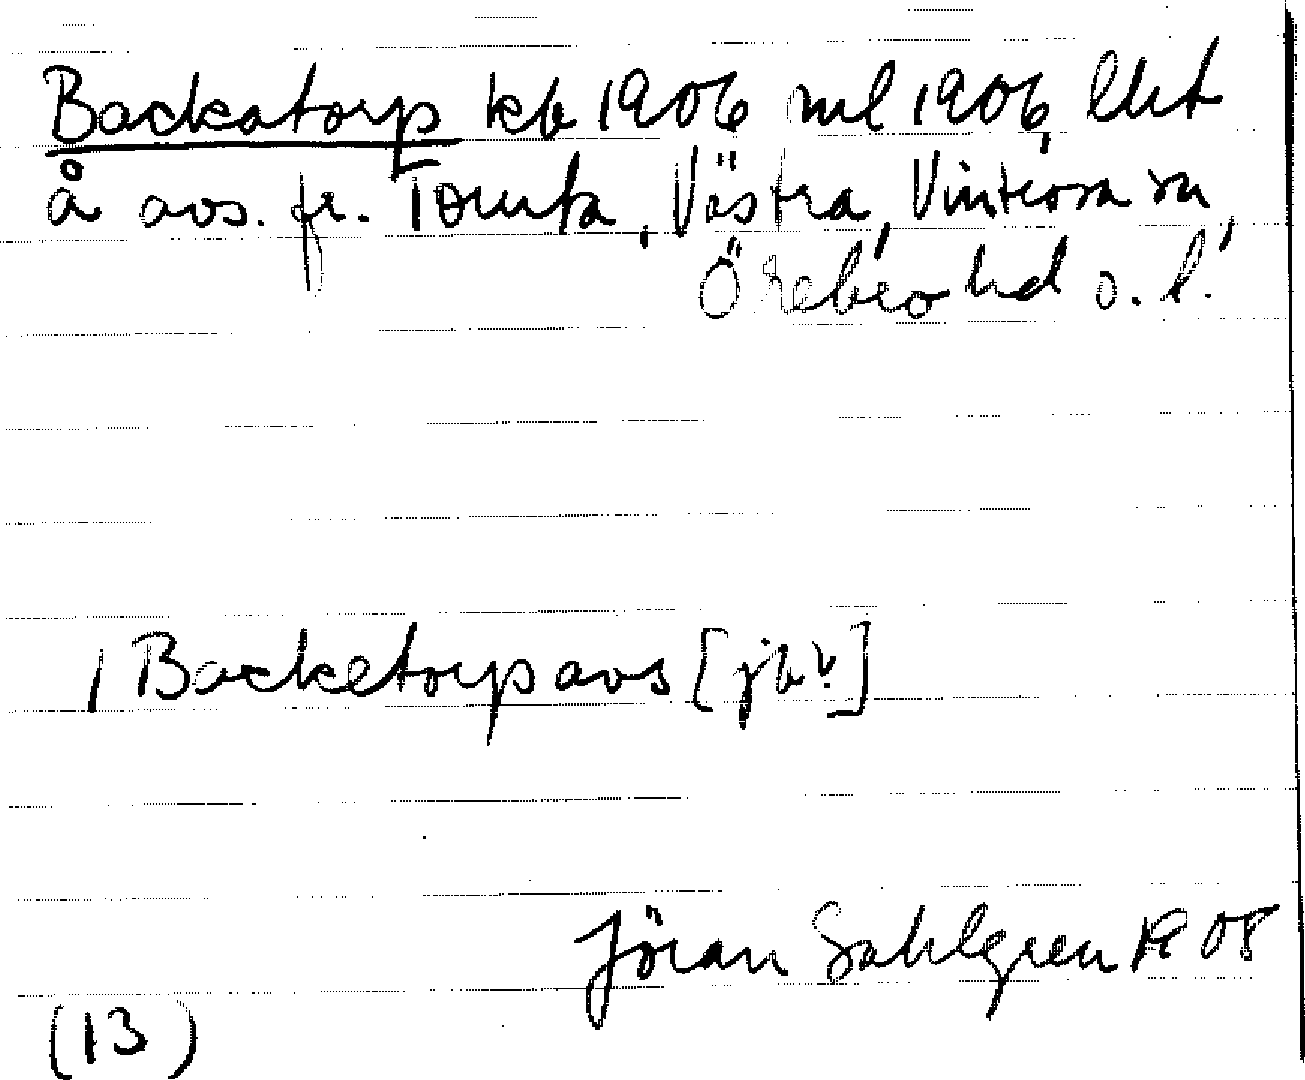 Backatorp kb 1906 ml 1906, lht
å avs. fr. Tomta, Västra, Vintrosa sn,
Örebro hd o. l.
Backetorp avs [jb?]
Jöran Sahlgren 1908
(13)